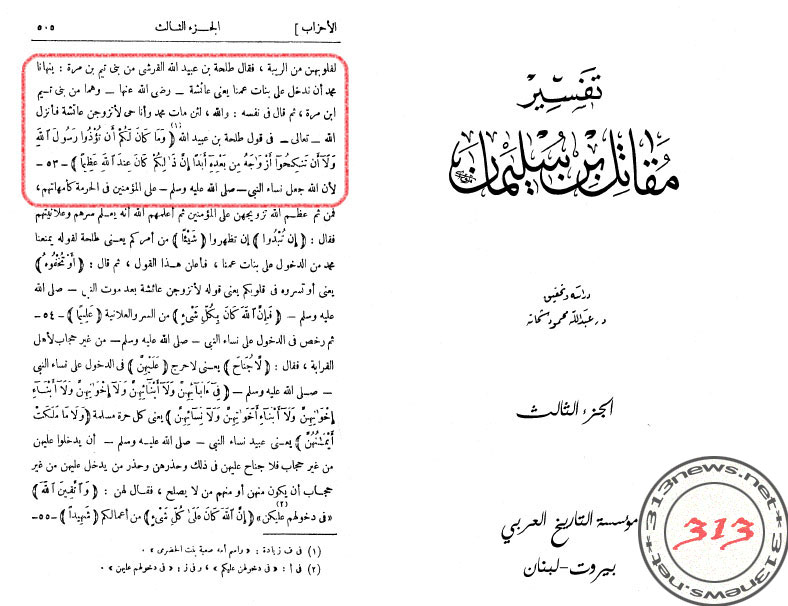 الأحزاب ]
الجزء الثالث
٥٠٥
لقلوبهن من الريبة ، فقال طلحة بن عبيد الله القرشى من بنى تيم بن مرة : ينهانا
محمد أن ندخل على بنات عمنا يعنى عائشة — رضى الله عنها — وهما من بنى تيم
ابن مرة ، ثم قال فى نفسه : والله ، لئن مات محمد وأنا حى لأتزوجن عائشة فأنزل
الله — تعالى — فى قول طلحة بن عبيد الله (١) ﴿ وَمَا كَانَ لَكُمْ أَن تُؤْذُوا رَسُولَ اللَّهِ
وَلَا أَن تَنكِحُوا أَزْوَاجَهُ مِن بَعْدِهِ أَبَدًا إِنَّ ذَٰلِكُمْ كَانَ عِندَ اللَّهِ عَظِيمًا ﴾ — ٥٣ —
لأن الله جعل نساء النبى — صلى الله عليه وسلم — على المؤمنين فى الحرمة كأمهاتهم ،
فمن ثم عظم الله تزويجهن على المؤمنين ثم أعلمهم الله أنه يعلم سرهم وعلانيتهم
فقال : ﴿ إِن تُبْدُوا ﴾ إن تظهروا ﴿ شَيْئًا ﴾ من أمركم يعنى طلحة لقوله يمنعنا
محمد من الدخول على بنات عمنا ، فأعلن هذا القول ، ثم قال : ﴿ أَوْ تُخْفُوهُ ﴾
يعنى أو تسروه فى قلوبكم يعنى قوله لأتزوجن عائشة بعد موت النبى — صلى الله
عليه وسلم — ﴿ فَإِنَّ اللَّهَ كَانَ بِكُلِّ شَىْءٍ ﴾ من السر والعلانية ﴿ عَلِيمًا ﴾ — ٥٤ —
ثم رخص فى الدخول على نساء النبى — صلى الله عليه وسلم — من غير حجاب لأهل
القرابة ، فقال : ﴿ لَّا جُنَاحَ ﴾ يعنى لا حرج ﴿ عَلَيْهِنَّ ﴾ فى الدخول على نساء النبى
— صلى الله عليه وسلم — ﴿ فِى ءَابَائِهِنَّ وَلَا أَبْنَائِهِنَّ وَلَا إِخْوَانِهِنَّ وَلَا أَبْنَاءِ
إِخْوَانِهِنَّ وَلَا أَبْنَاءِ أَخَوَاتِهِنَّ وَلَا نِسَائِهِنَّ ﴾ يعنى كل حرة مسلمة ﴿ وَلَا مَا مَلَكَتْ
أَيْمَانُهُنَّ ﴾ يعنى عبيد نساء النبى — صلى الله عليه وسلم — أن يدخلوا عليهن
من غير حجاب فلا جناح عليهن فى ذلك وحذرهن وحذر من يدخل عليهن من غير
حجاب أن يكون منهن أو منهم من لا يصلح ، فقال لهن : ﴿ وَاتَّقِينَ اللَّهَ ﴾
«فى دخولهم عليكن» (٢) ﴿ إِنَّ اللَّهَ كَانَ عَلَىٰ كُلِّ شَىْءٍ ﴾ من أعمالكم ﴿ شَهِيدًا ﴾ — ٥٥ —
(١) فى ف زيادة : « واسم أمه صعبة بنت الحضرى » .
(٢) فى أ : « فى دخولهن عليكم » ، وفى ز : « فى دخولهم عليهن » .
تفسير
مقاتل بن سليمان
دراسة وتحقيق
د. عبدالله محمود شحاته
الجزء الثالث
مؤسسة التاريخ العربي
بيروت - لبنان
313news.net*313news.net*
313